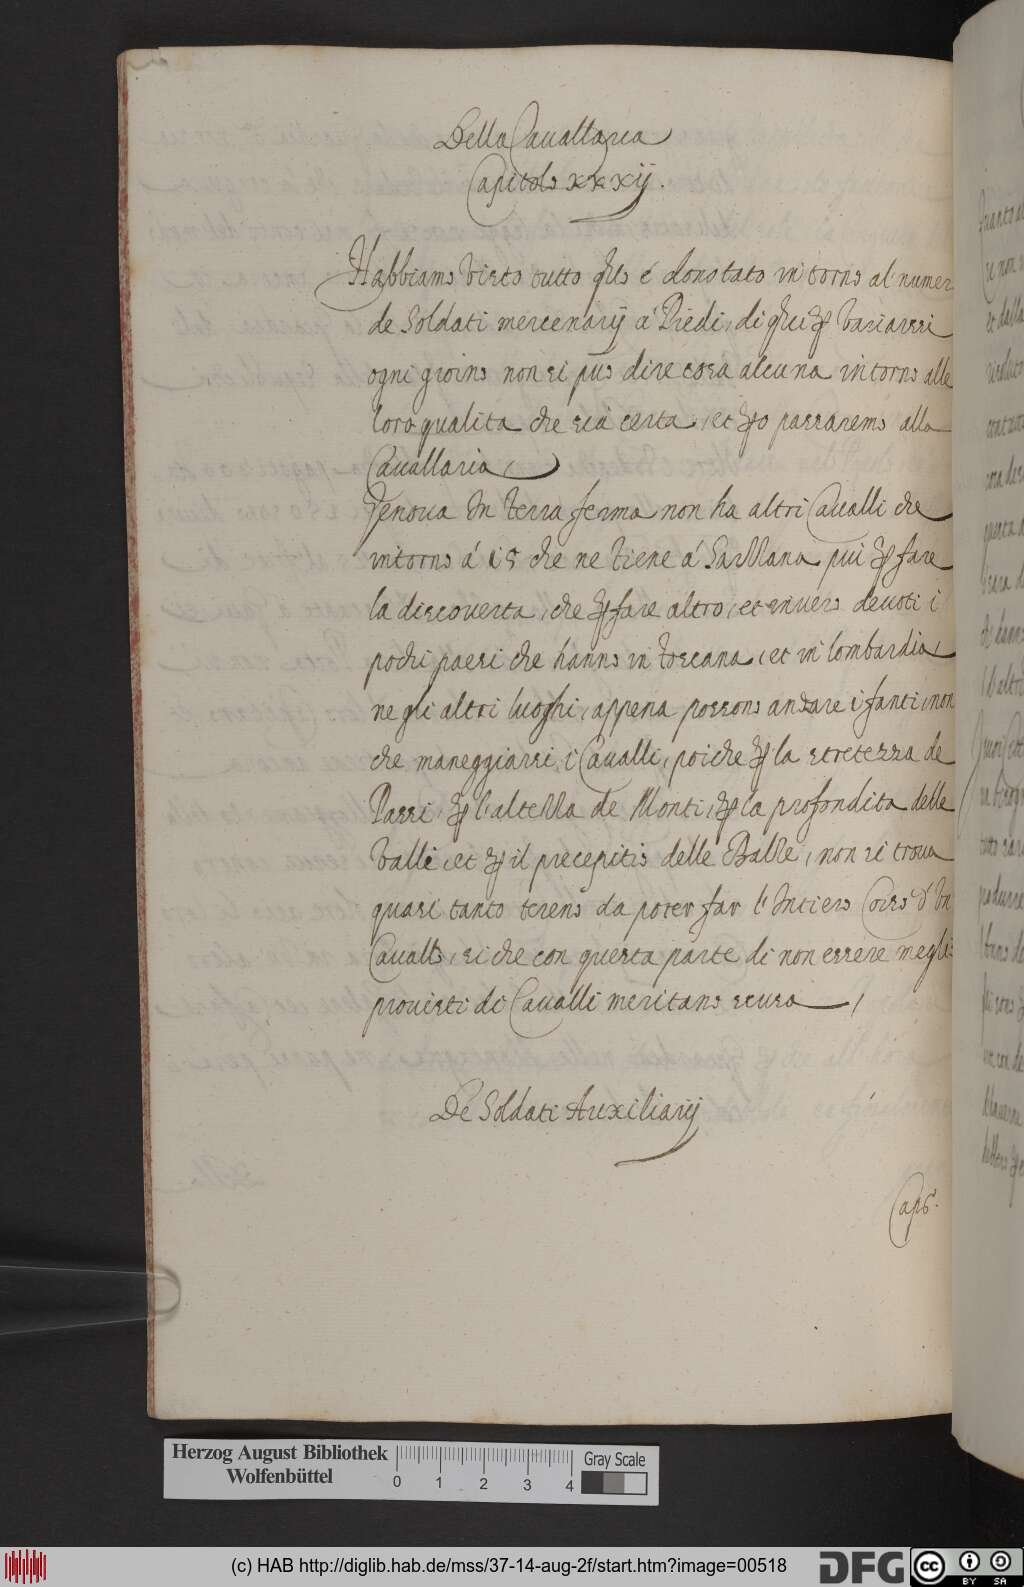 Della Cavallaria
Capitolo XXXij.
Habbiamo visto tutto qllo é donotato intorno al numer
de Soldati mercenarij á Piedi, di qlli ꝑ variarsi
ogni gioino non si può dire cosa alcuna intorno alle
loro qualita che sia certa, et ꝑo passaremo alla
Cavallaria,
Genova In terra ferma non ha altri Cavalli che
intorno á 25 che ne tiene á Sarzana piú ꝑ fare
la discoverta, che ꝑ fare altro, et envero devoti i
pochi paesi che hanno in toscana, et in lombardia,
ne gli altri luoghi, appena possono andare i fanti, non
che maneggiarsi, i Cavalli, poiche ꝑ la stretezza de
Passi, ꝑ l'altezza de Monti, ꝑ la profondita delle
Valli, et ꝑ il precepitio delle Balze, non si trova
quasi tanto tereno da poter far l'Intiero Corso d'un
Cavallo, si che con questa parte di non essere meglio
provisti di Cavalli meritano scusa,
De Soldati Auxiliarij
Capo.
Herzog August Bibliothek
Wolfenbüttel
0 1 2 3 4
Gray Scale
(c) HAB http://diglib.hab.de/mss/37-14-aug-2f/start.htm?image=00518
DFG
cc BY SA